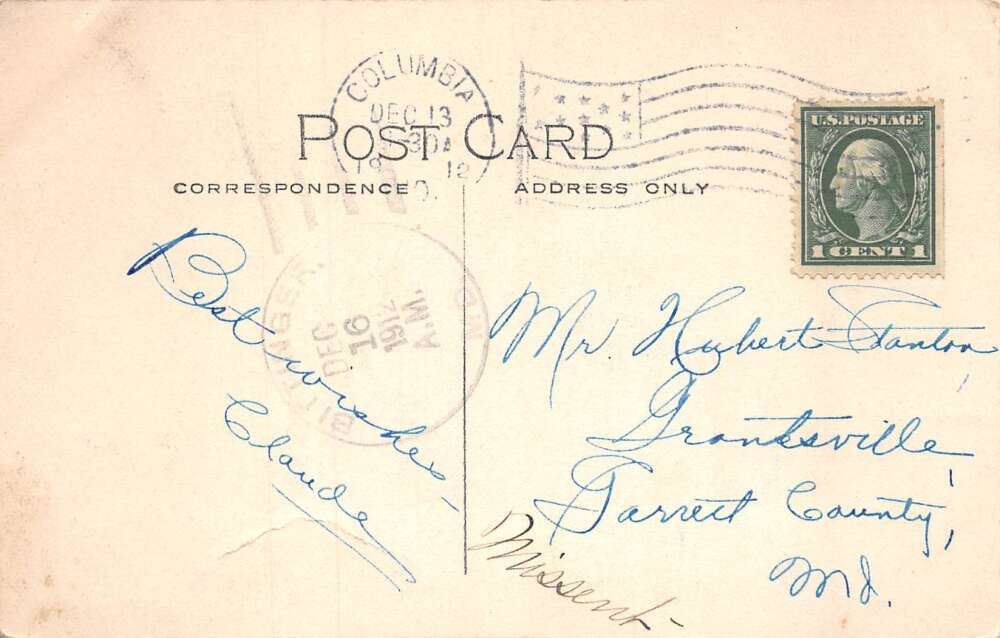 COLUMBIA
DEC 13
30A
1912
POST CARD
CORRESPONDENCE
ADDRESS ONLY
U.S. POSTAGE
1 CENT 1
BITTINGER. MD.
DEC
16
1912
A.M.
Best wishes -
Claude
Mr. Hubert Stanton,
Grantsville,
Garrett County,
Md.
Missent -